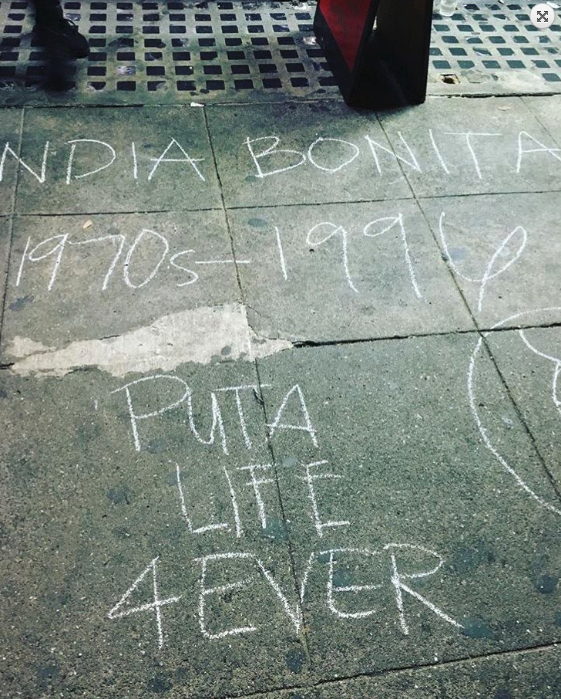 NDIA BONITA
1970s-1996
PUTA
LIFE
4EVER